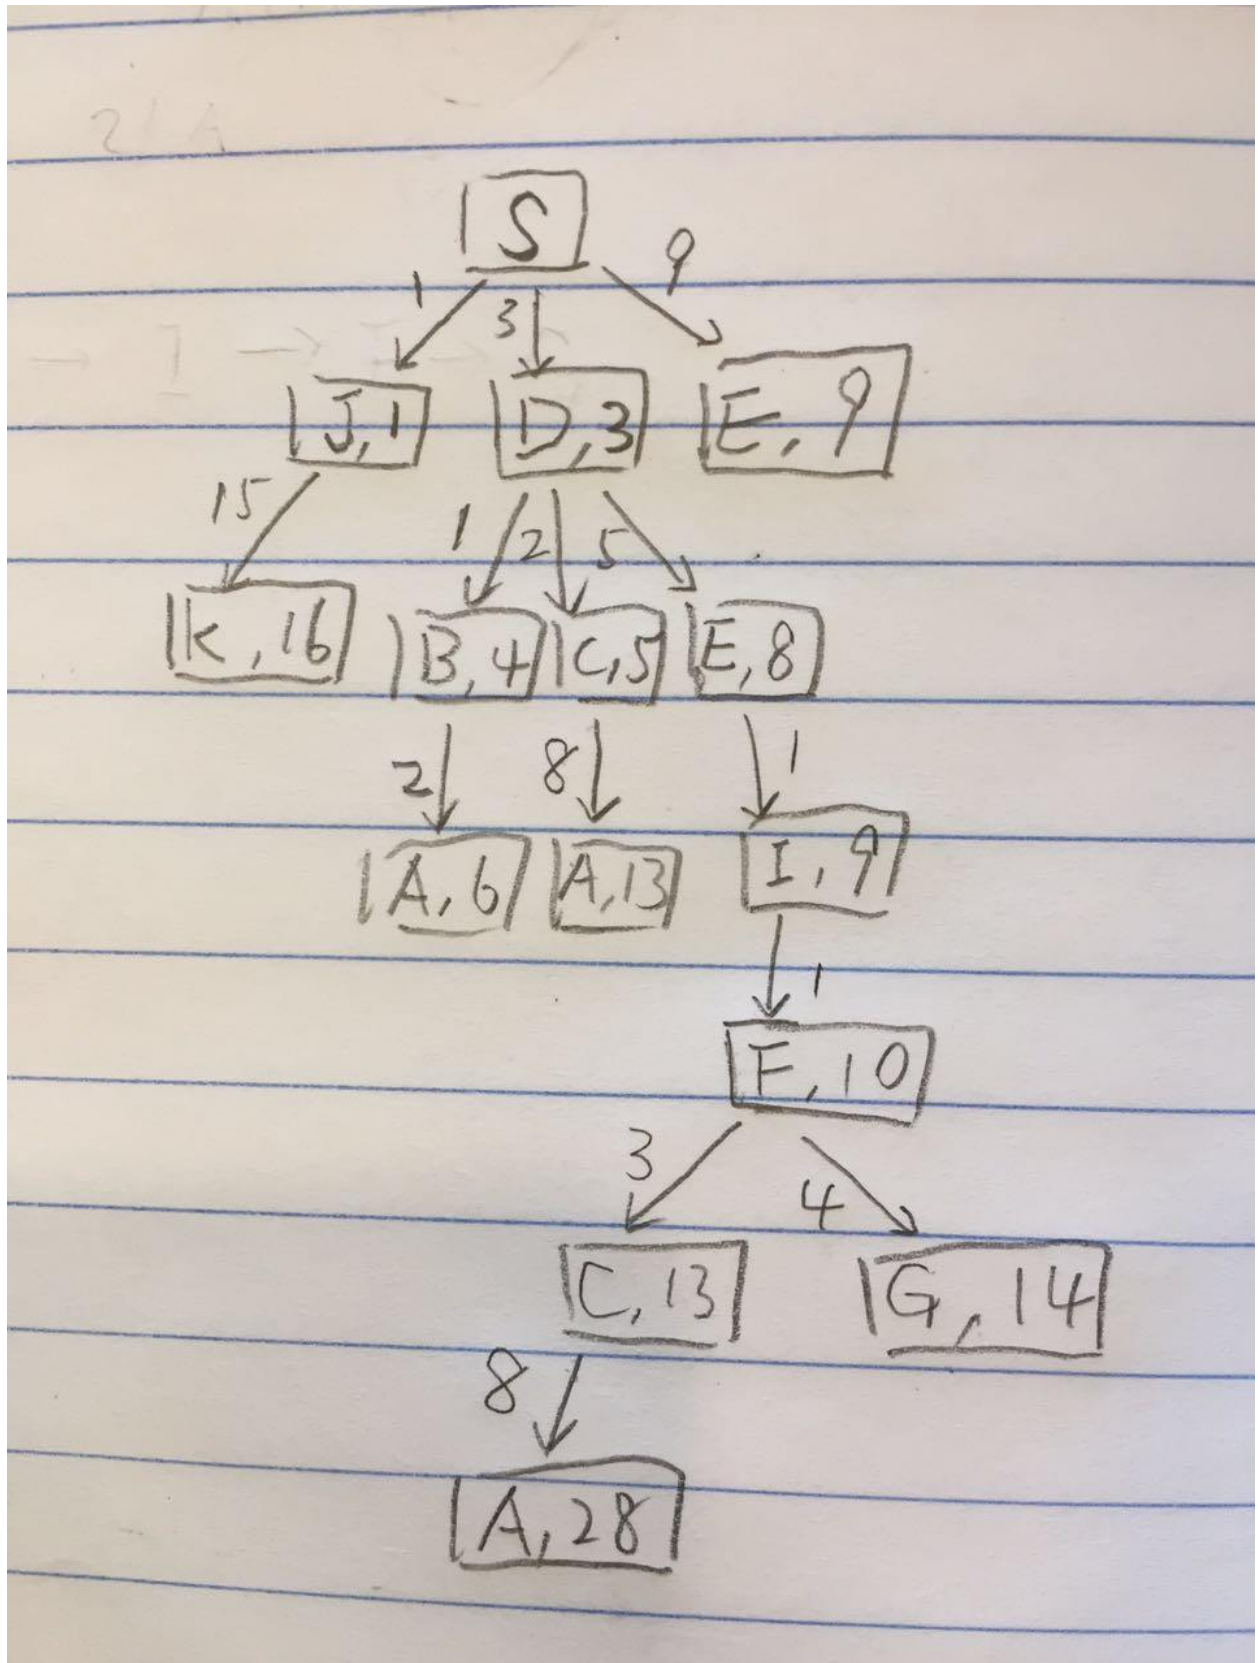 S
1 3 9
J,1 D,3 E,9
15 1 2 5
K,16 B,4 C,5 E,8
2 8 1
A,6 A,13 I,9
1
F,10
3 4
C,13 G,14
8
A,28